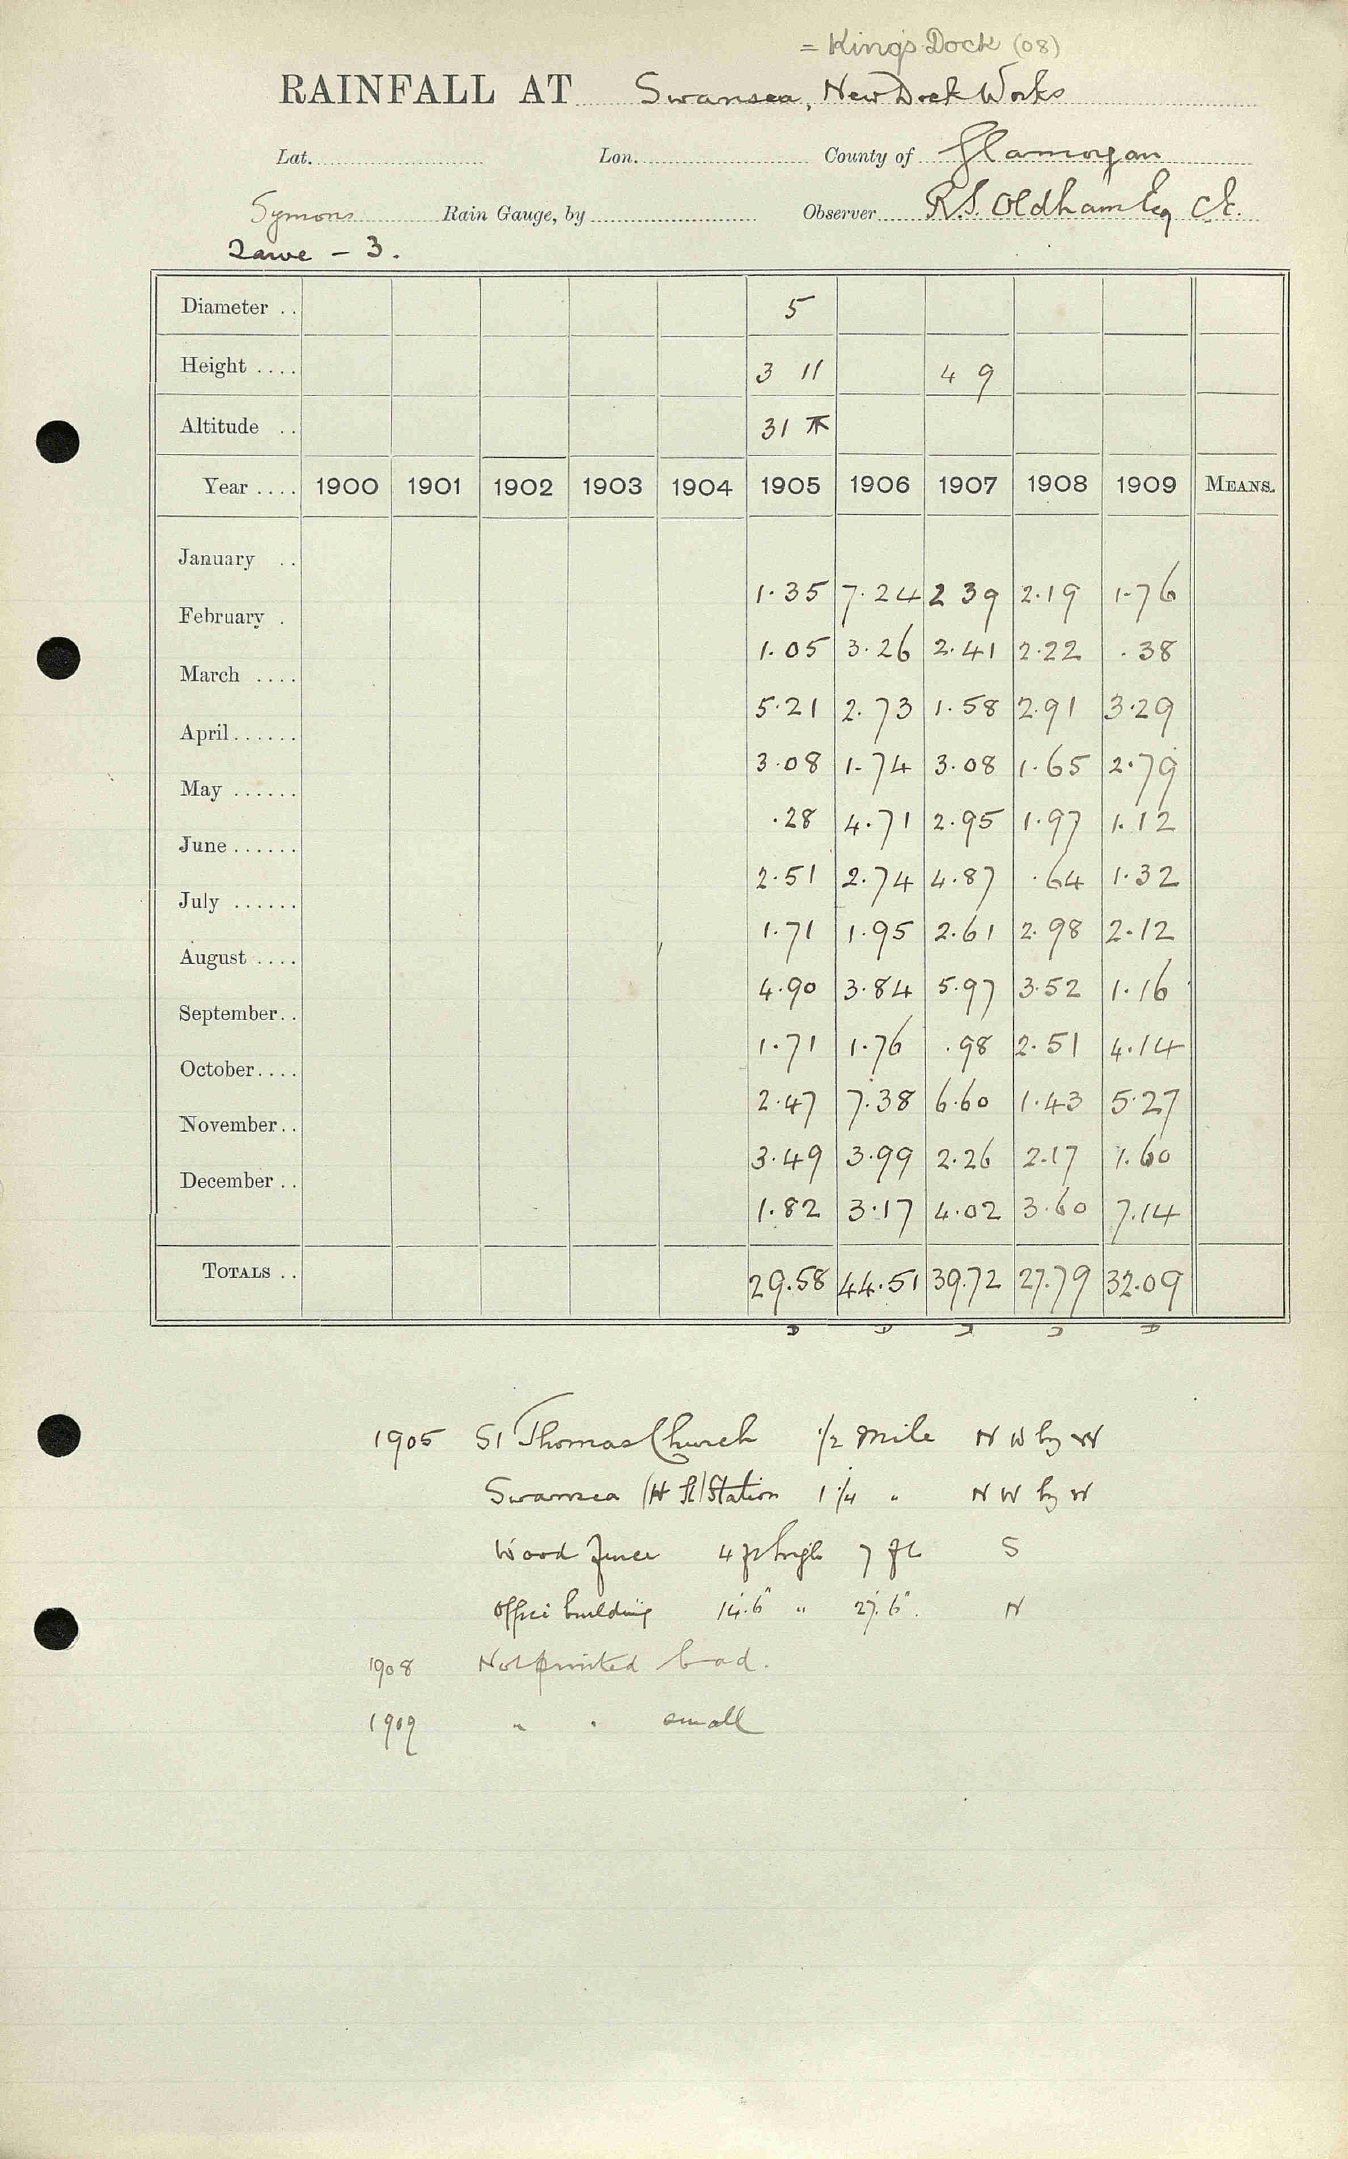 = King's Dock (08)
RAINFALL AT Swansea, New Dock Works
Lat. Lon. County of Glamorgan
Symons Rain Gauge, by Observer R.S. Oldham Esq C.E.
Tawe - 3.
Diameter .. 5
Height .... 3 11 4 9
Altitude .. 31
Year .... 1900 1901 1902 1903 1904 1905 1906 1907 1908 1909 MEANS.
January .. 1.35 7.24 2 39 2.19 1.76
February . 1.05 3.26 2.41 2.22 .38
March .... 5.21 2.73 1.58 2.91 3.29
April ...... 3.08 1.74 3.08 1.65 2.79
May ...... .28 4.71 2.95 1.97 1.12
June ...... 2.51 2.74 4.87 .64 1.32
July ...... 1.71 1.95 2.61 2.98 2.12
August .... 4.90 3.84 5.97 3.52 1.16
September .. 1.71 1.76 .98 2.51 4.14
October .... 2.47 7.38 6.60 1.43 5.27
November .. 3.49 3.99 2.26 2.17 1.60
December .. 1.82 3.17 4.02 3.60 7.14
TOTALS .. 29.58 44.51 39.72 27.79 32.09
1905 St Thomas Church 1/2 mile N W by W
Swansea (H St) Station 1 1/4 " N W by W
Wood fence 4 ft high 7 ft S
Office building 14'.6" " 27'.6". N
1908 Not printed bad.
1909 " " small